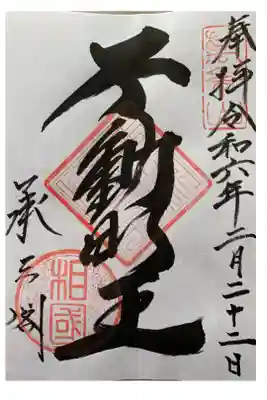 奉拝 令和六年二月二十二日
不動明王
承天閣
相国